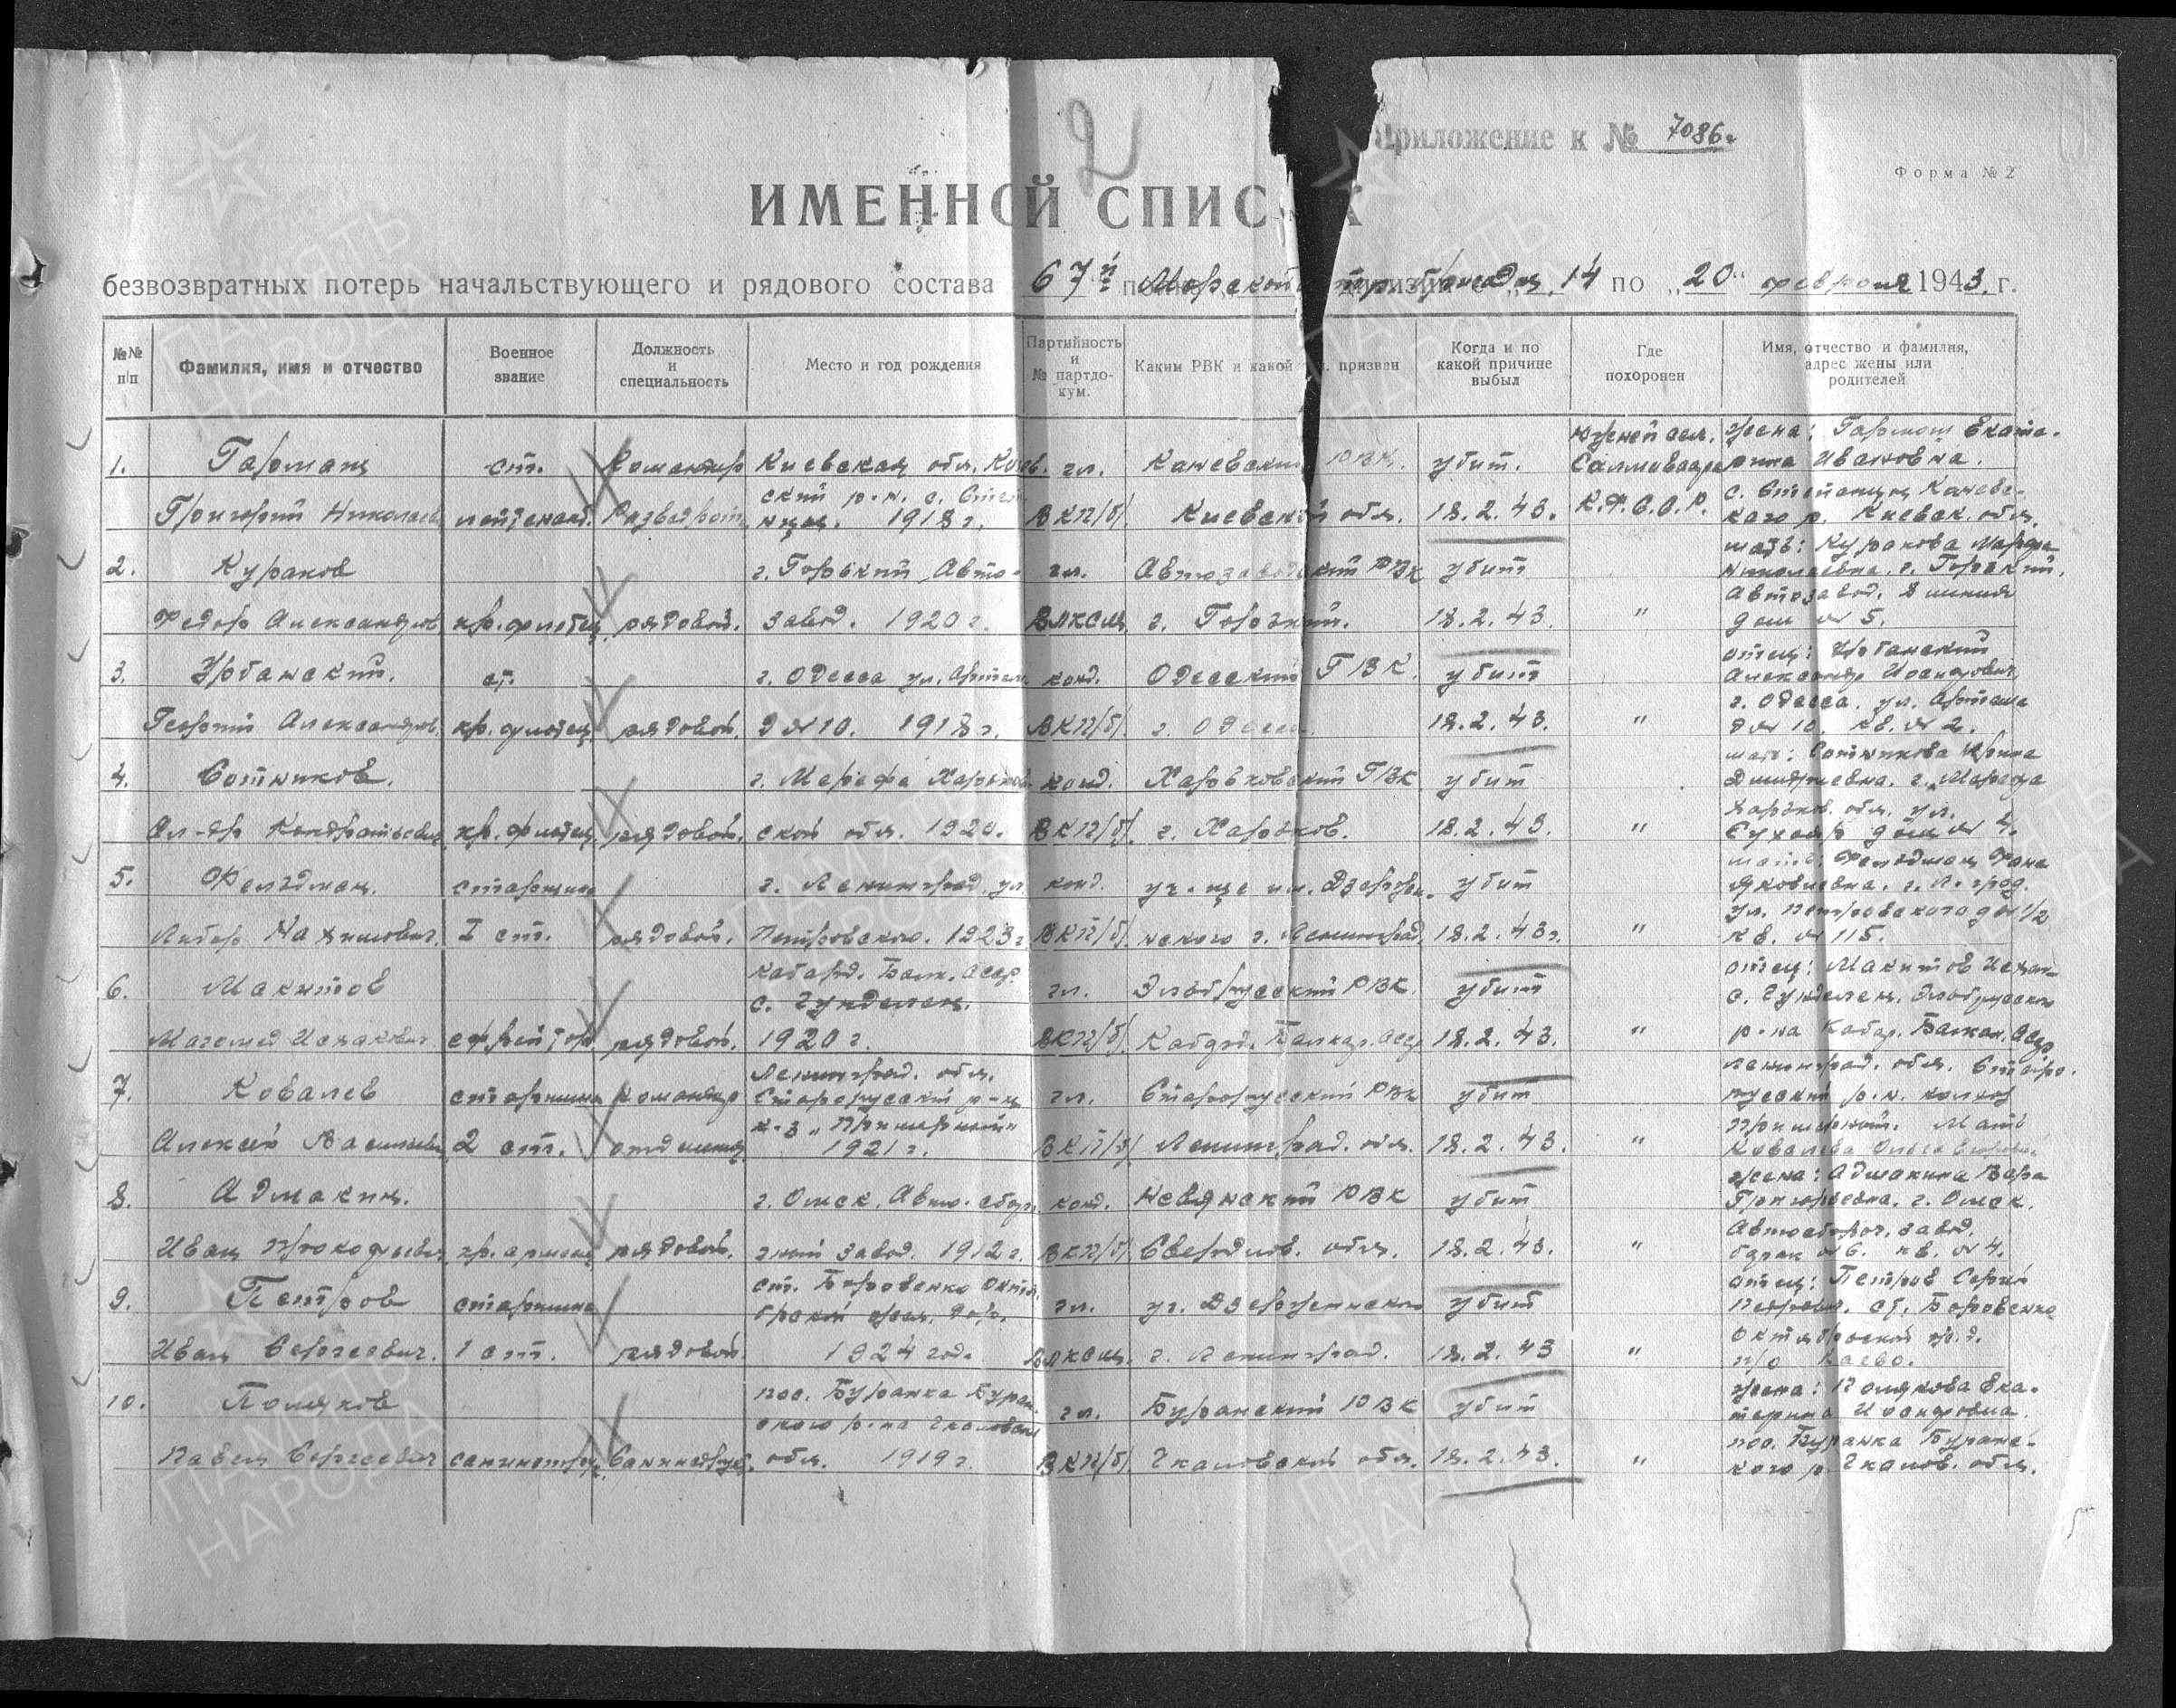 2
Приложение к № 7086с
Форма № 2
ИМЕННОЙ СПИСОК
безвозвратных потерь начальствующего и рядового состава 67й Морской стр. бригады 14 по „20" февраля 1943 г.
№№ п/п
Фамилия, имя и отчество
Военное звание
Должность и специальность
Место и год рождения
Партийность и № партдокум.
Каким РВК и какой призван
Когда и по какой причине выбыл
Где похоронен
Имя, отчество и фамилия, адрес жены или родителей
1. Гармаш ст. Командир Киевская обл. Канев- чл. Каневский РВК. убит. Южней сел. жена: Гармаш Екате-
ский р-н. с. Степа- Салмиваара рина Ивановна.
Григорий Николаев. лейтенант. Разведроты нцы. 1918 г. ВКП/б/ Киевской обл. 18.2.43. К.Ф.С.С.Р. с. Степанцы Канев-
кого р. Киевск. обл.
2. Кураков г. Горький, Авто- чл. Автозаводский РВК убит мать: Куракова Марфа
Николаевна. г. Горький,
Федор Александров. кр.флотец рядовой. завод. 1920 г. ВЛКСМ г. Горький. 18.2.43. " Автозавод.
дом № 5.
3. Урбанский. ст. г. Одесса ул. Артем. канд. Одесский ГВК. убит отец: Урбанский
Александр Иосифович
Георгий Александров. кр. флотец. рядовой. д № 10. 1918 г. ВКП/б/ г. Одесса. 18.2.43. " г. Одесса. ул. Артема
д № 10. кв. № 2.
4. Сотников. г. Мерефа Харьков- канд. Харьковский ГВК убит мать: Сотникова
Дмитриевна. г. Мерефа
Ал-др Кондратьевич кр. флотец рядовой. ской обл. 1920. ВКП/б/. г. Харьков. 18.2.43. " Харьков. обл. ул.
дом № 4.
5. Фельдман. старшина г. Ленинград ул. канд. уч-ще им. Дзержин- убит мать: Фельдман
Яковлевна. г. Л-град.
I ст. рядовой. Петровского. 1923 г ВКП/б/. нского г. Ленинград 18.2.43г. " ул. Петровского д № 1/2
кв. № 115.
6. Макитов Кабард. Балк. Асср. чл. Эльбрусский РВК. убит отец: Макитов
с. Гунделен. с. Гунделен. Эльбрусского
Магомед Исхакович ефрейтор. рядовой. 1920 г. ВКП/б/. Кабард. Балкар. асср 18.2.43. " р-на Кабар. Балкан. асср
7. Ковалев старшина командир Ленинград. обл. чл. Старорусский РВК убит Ленинград. обл. Старо-
Старорусский р-н русский р-н. колхоз
Алексей Васильев. 2 ст. отделения к-з „Примерный" ВКП/б/ Ленинград. обл. 18.2.43. " Примерный. Мать
1921 г. Ковалева
8. Адмакин. г. Омск. Авто-сбор. канд. Невянский РВК убит жена: Адмакина Вера
Григорьевна. г. Омск.
Иван Прокофьевич кр. армеец рядовой. очный завод. 1912 г. ВКП/б/ Свердлов. обл. 18.2.43. " Автосбороч. завод.
барак № 6. кв. № 4.
9. Петров старшина ст. Боровенко Октя- чл. уч. Дзержинского убит отец: Петров Сергей
брьской жел. дор. Петрович. ст. Боровенко
Иван Сергеевич. 1 ст. рядовой 1924 год. ВЛКСМ. г. Ленинград. 18.2.43 " Октябрьской ж.д.
п/о
10. Поляков пос. Буранка Буран- чл. Буранский РВК убит жена: Полякова Ека-
ского р-на Чкаловской терина Иосифовна.
Павел Сергеевич санинструк. Санинструк. обл. 1919 г. ВКП/б/. Чкаловской обл. 18.2.43. " пос. Буранка Буранс-
кого р. Чкалов. обл.
ПАМЯТЬ НАРОДА